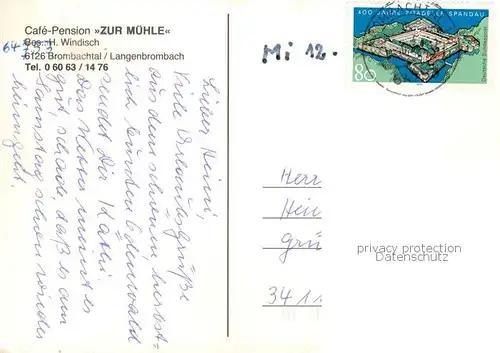 Café-Pension »ZUR MÜHLE«
Bes.: H. Windisch
6126 Brombachtal / Langenbrombach
Tel. 0 60 63 / 14 76
Lieber Heini,
Viele Urlaubsgrüße
aus dem schönen herbst-
lich bunten Odenwald
sendet Dir Kathi
Das Wetter meint es
gut, schade, daß es am
Samstag schon wieder
heimgeht.
Mi 12.
400 JAHRE ZITADELLE SPANDAU
80
Deutsche Bundespost
Herr
Hein
Grü
341
privacy protection
Datenschutz